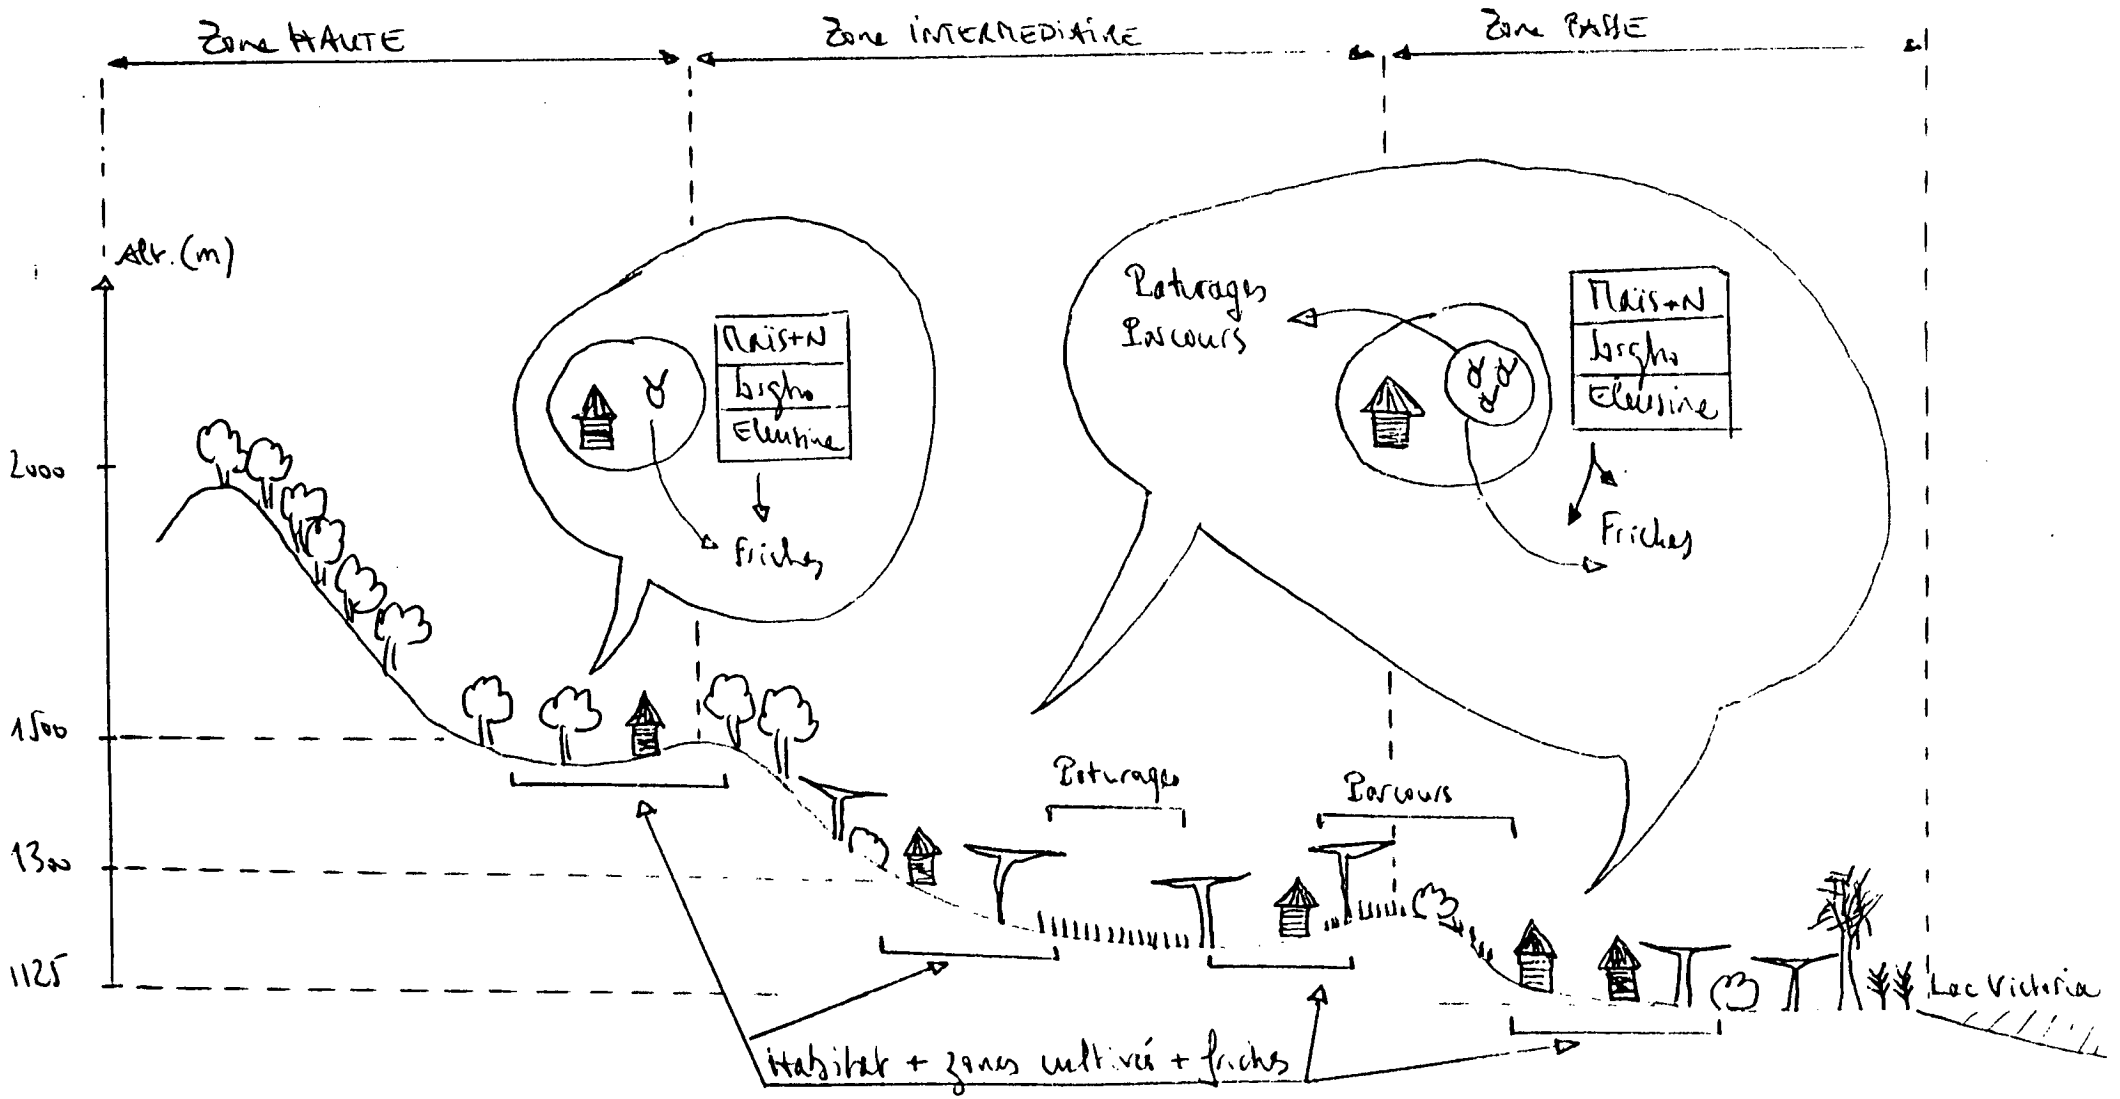 Zone HAUTE
Zone INTERMEDIAIRE
Zone BASSE
Alt. (m)
Maïs+N
Sorgho
Eleusine
Friches
Paturages
Parcours
Maïs+N
Sorgho
Eleusine
Friches
2000
1500
1300
1125
Paturages
Parcours
Lac Victoria
Habitat + zones cultivés + friches